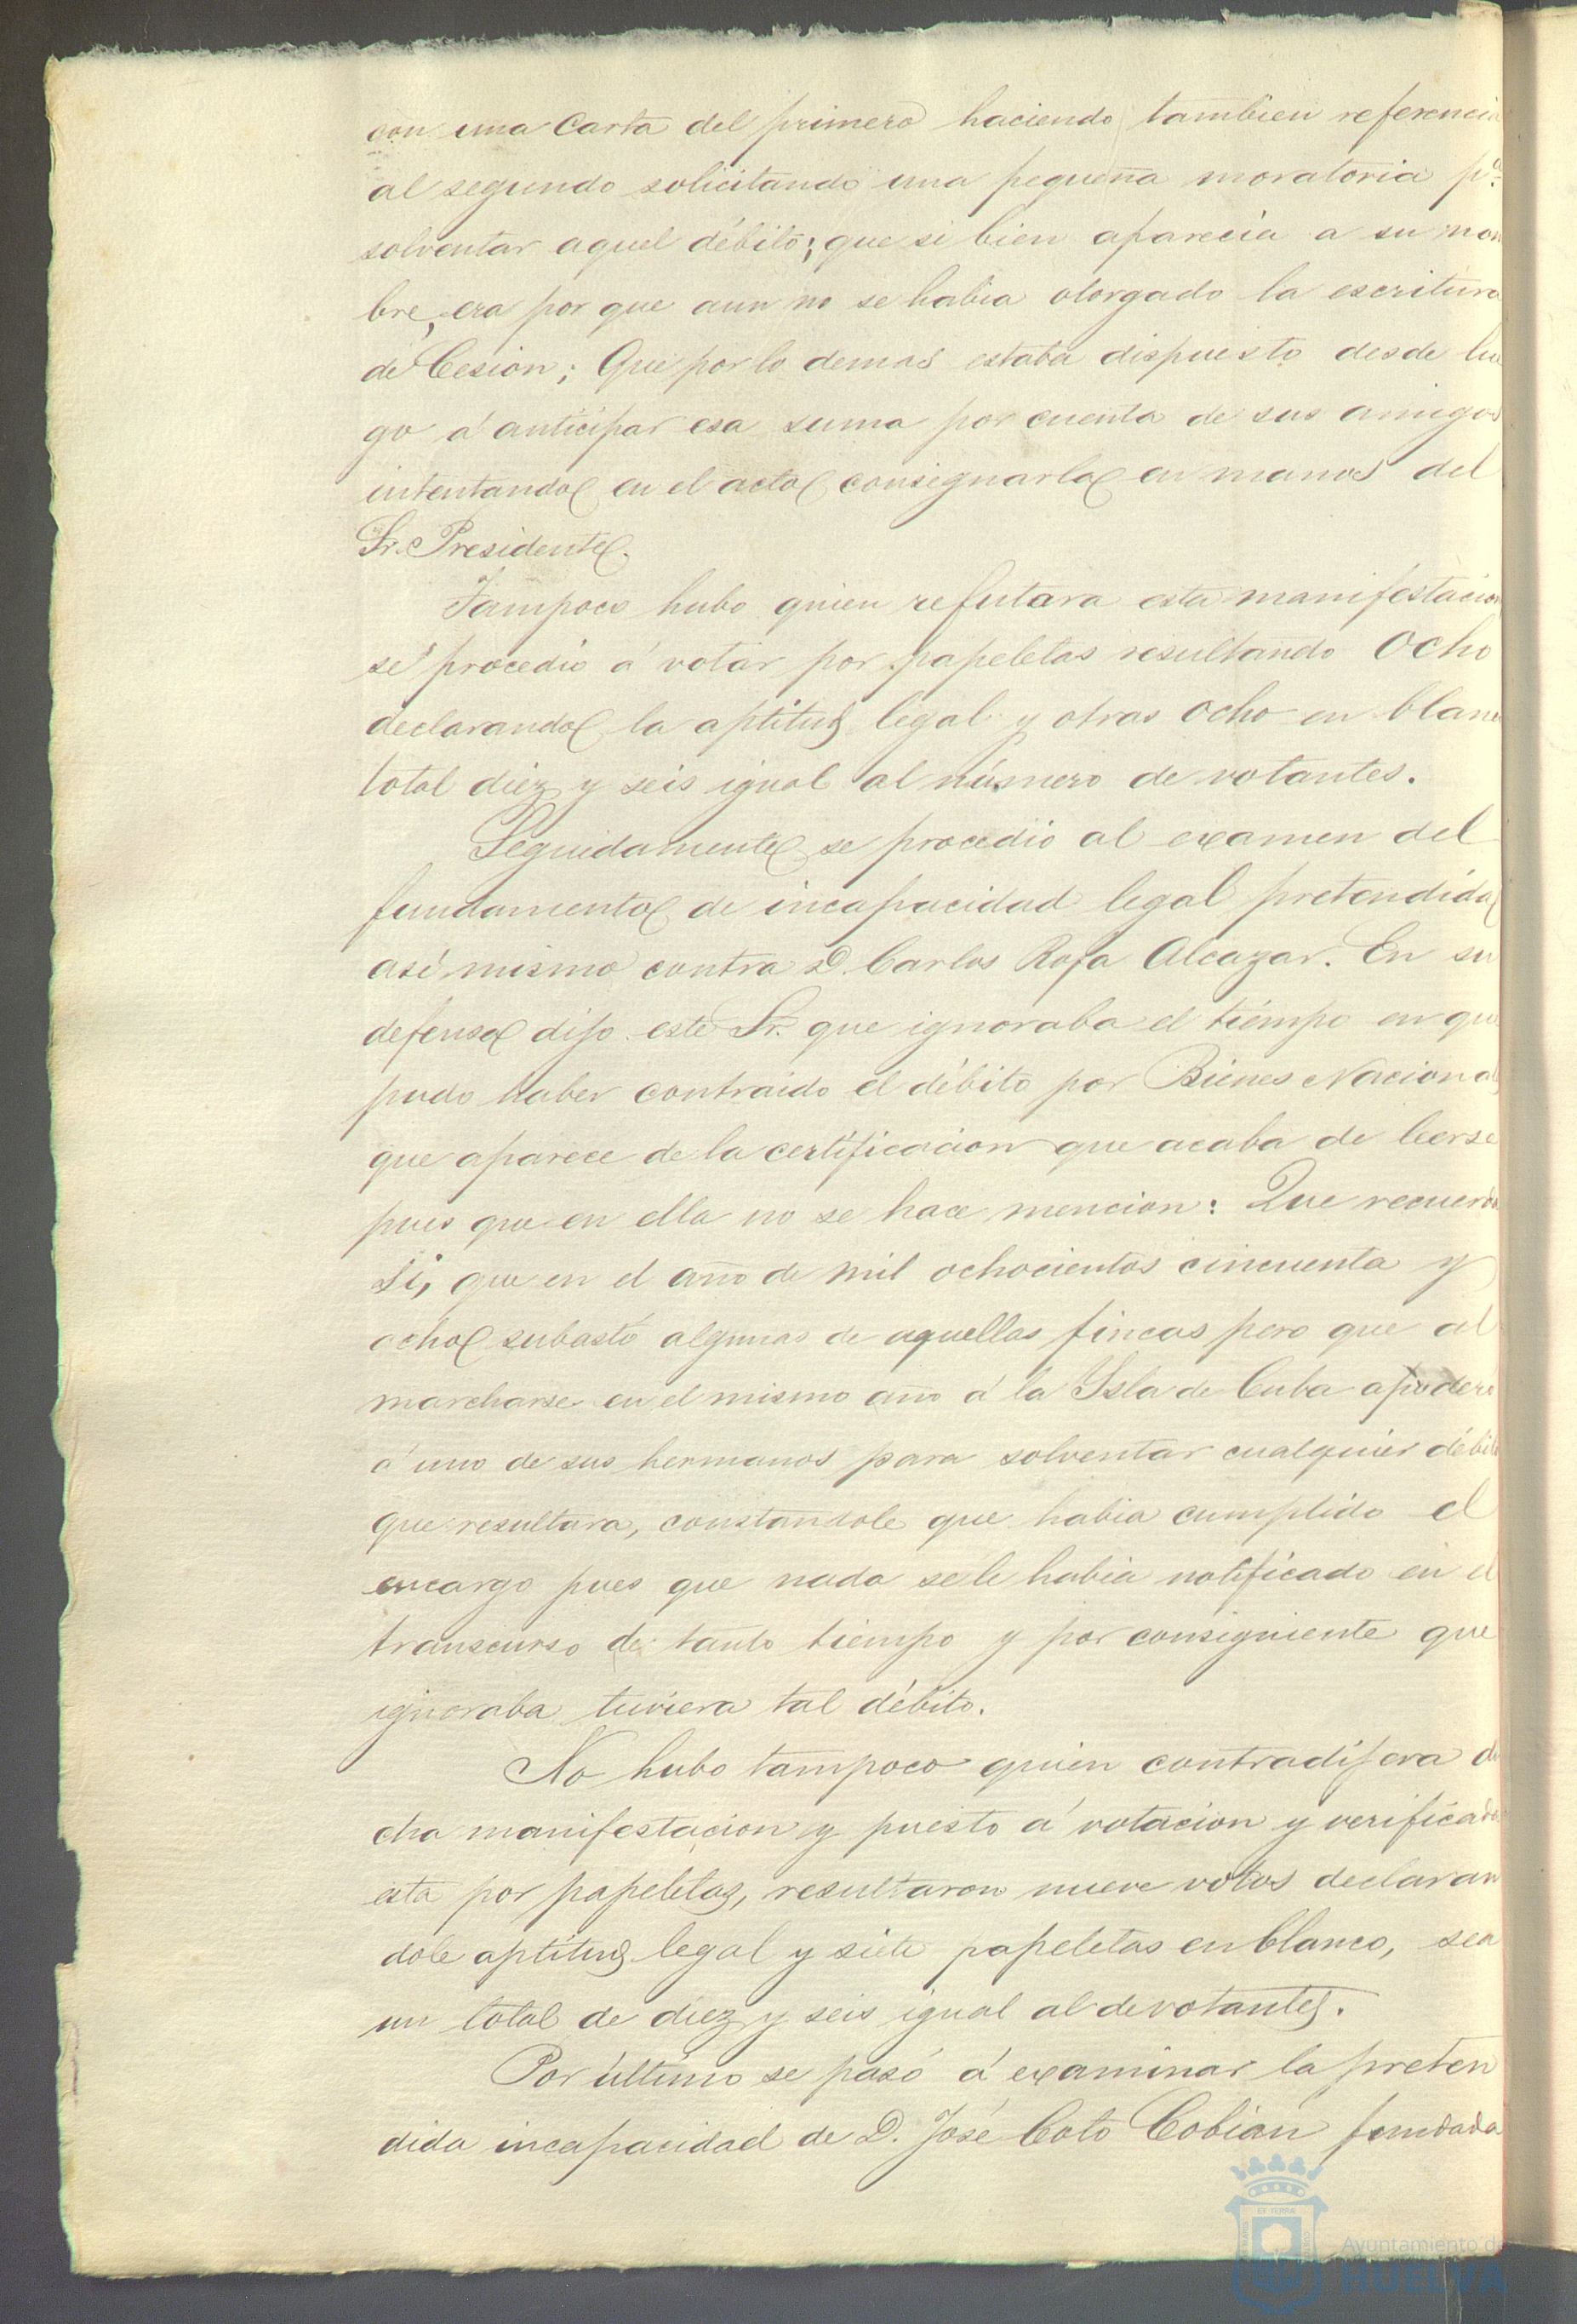 con una Carta del primero haciendo tambien referencia
al segundo solicitando una pequeña moratoria pª
solventar aquel débito; que si bien aparecia a su nom
bre, era por que aun no se habia otorgado la escritura
de Cesion; Que por lo demas estaba dispuesto desde lue
go á anticipar esa suma por cuenta de sus amigos
intentando en el acto consignarla en manos del
Sr. Presidente.
Tampoco hubo quien refutara esta manifestacion
se procedio á votar por papeletas resultando Ocho
declarando la aptitud legal y otras ocho en blanco
total diez y seis igual al número de votantes.
Seguidamente se procedio al examen del
fundamento de incapacidad legal pretendida
asi mismo contra D. Carlos Rofa Alcazar. En su
defensa dijo este Sr. que ignoraba el tiempo en que
pudo haber contraido el débito por Bienes Nacional
que aparece de la certificacion que acaba de leerse
pues que en ella no se hace mencion: Que recuerda
si, que en el año de mil ochocientos cincuenta y
ocho subastó algunas de aquellas fincas pero que al
marcharse en el mismo año á la Isla de Cuba apodero
á uno de sus hermanos para solventar cualquier débito
que resultara, constandole que habia cumplido el
encargo pues que nada se le habia notificado en el
transcurso de tanto tiempo y por consiguiente que
ignoraba tuviera tal débito.
No hubo tampoco quien contradijera di
cha manifestacion y puesto á votacion y verificada
esta por papeletas, resultaron nueve votos declaran
dole aptitud legal y siete papeletas en blanco, sea
un total de diez y seis igual al de votantes.
Por último se pasó á examinar la preten
dida incapacidad de D. José Coto Cobian fundada
Ayuntamiento de
HUELVA